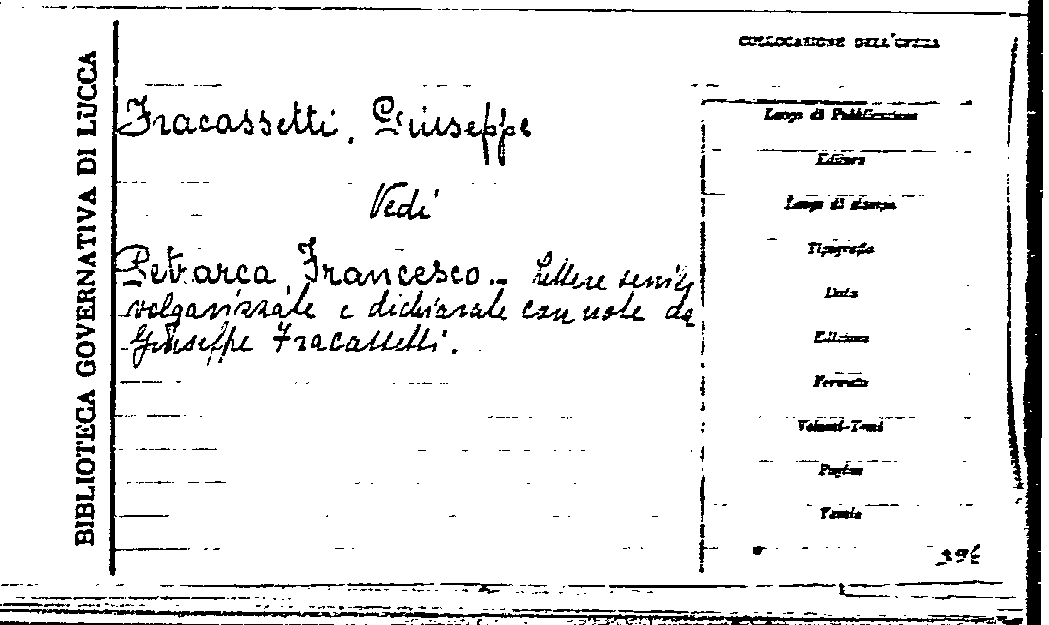 BIBLIOTECA GOVERNATIVA DI LUCCA
COLLOCAZIONE DELL'OPERA
Fracassetti, Giuseppe
Vedi
Petrarca, Francesco. - Lettere senili
volgarizzate e dichiarate con note da
Giuseppe Fracassetti.
Luogo di Pubblicazione
Editore
Luogo di stampa
Tipografia
Data
Edizione
Formato
Volumi-Tomi
Pagine